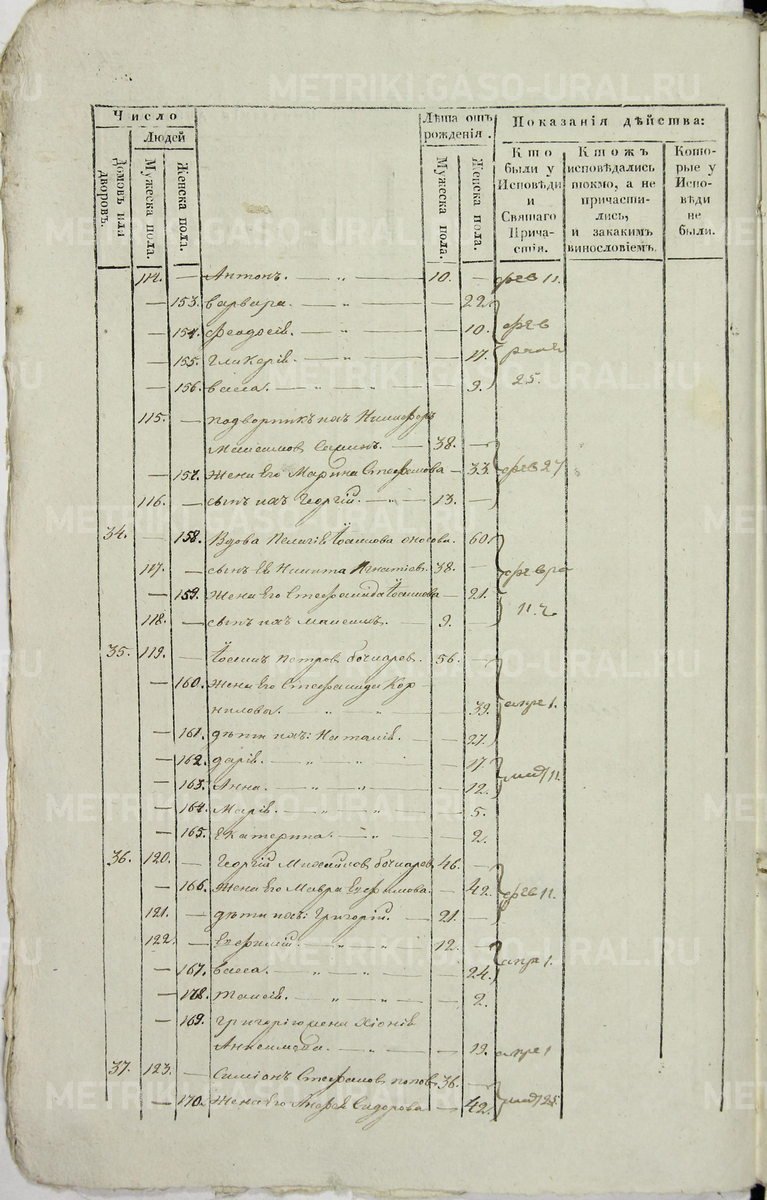 Число
Людей
Домовъ или дворовъ.
Мужеска пола.
Женска пола.
Лѣта отъ рожденія.
Мужеска пола.
Женска пола.
Показанія дѣйства:
Кто были у Исповѣди и Святаго Причастія.
Ктожъ исповѣдались токмо, а не причастились, и закакимъ винословіемъ.
Которые у Исповѣди не были.
114. — Антонъ. — „ — 10. — фев 11.
— 153. Варвара. — „ — 22.
— 154. Феодосія. — „ — 10. фев
— 155. Гликерія. — „ — 17.
— 156. Васса. — „ „ — 9. 25.
115. — подворникъ ихъ Никифоръ
38. —
— 157. Жена Его Марина Стефанова — 33. фев 27
116. — сынъ ихъ Георгій. — „ — 13. —
34. — 158. Вдова Пелагія 60.
117. — сынъ Ея Никита Игнатіев. 38. — февра
— 159. Жена Его Стефанида — 21.
118. — сынъ ихъ — 9. — 11.
35. 119. — Іосифъ Петров Бочкарев. 56. —
— 160. Жена Его Стефанида Кор
нилова. — „ „ 39. апре 1.
— 161. дѣти ихъ: Наталія. — 27.
— 162. Дарія. — „ „ — 17.
— 163. Анна. — „ „ — 12. 11.
— 164. Марія. — „ „ — 5.
— 165. Екатерина. — „ — 2.
36. 120. — Георгій Михайлов Бочкарев 46. —
— 166. Жена Его Мавра Евфимова. — 42. фев 11.
121. — дѣти ихъ: Григорій. — 21. —
122. — Евфимій. „ „ 12. — апр 1.
— 167. Васса. — „ „ — 24.
— 178. Таисія. — „ „ — 2.
— 169. Григорія жена Хіонія
Анисимова. — „ — 19. апре 1
37. 123. — Симіонъ Стефанов Попов. 36. —
— 170. Жена Его Сидорова — 42. 25.
METRIKI.GASO-URAL.RU